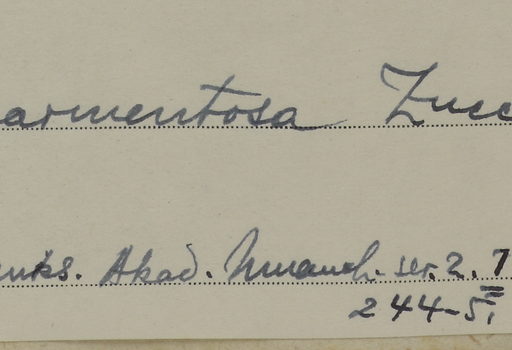 armentosa Zucc
enks. Akad. Muench. ser. 2. 7
244-5